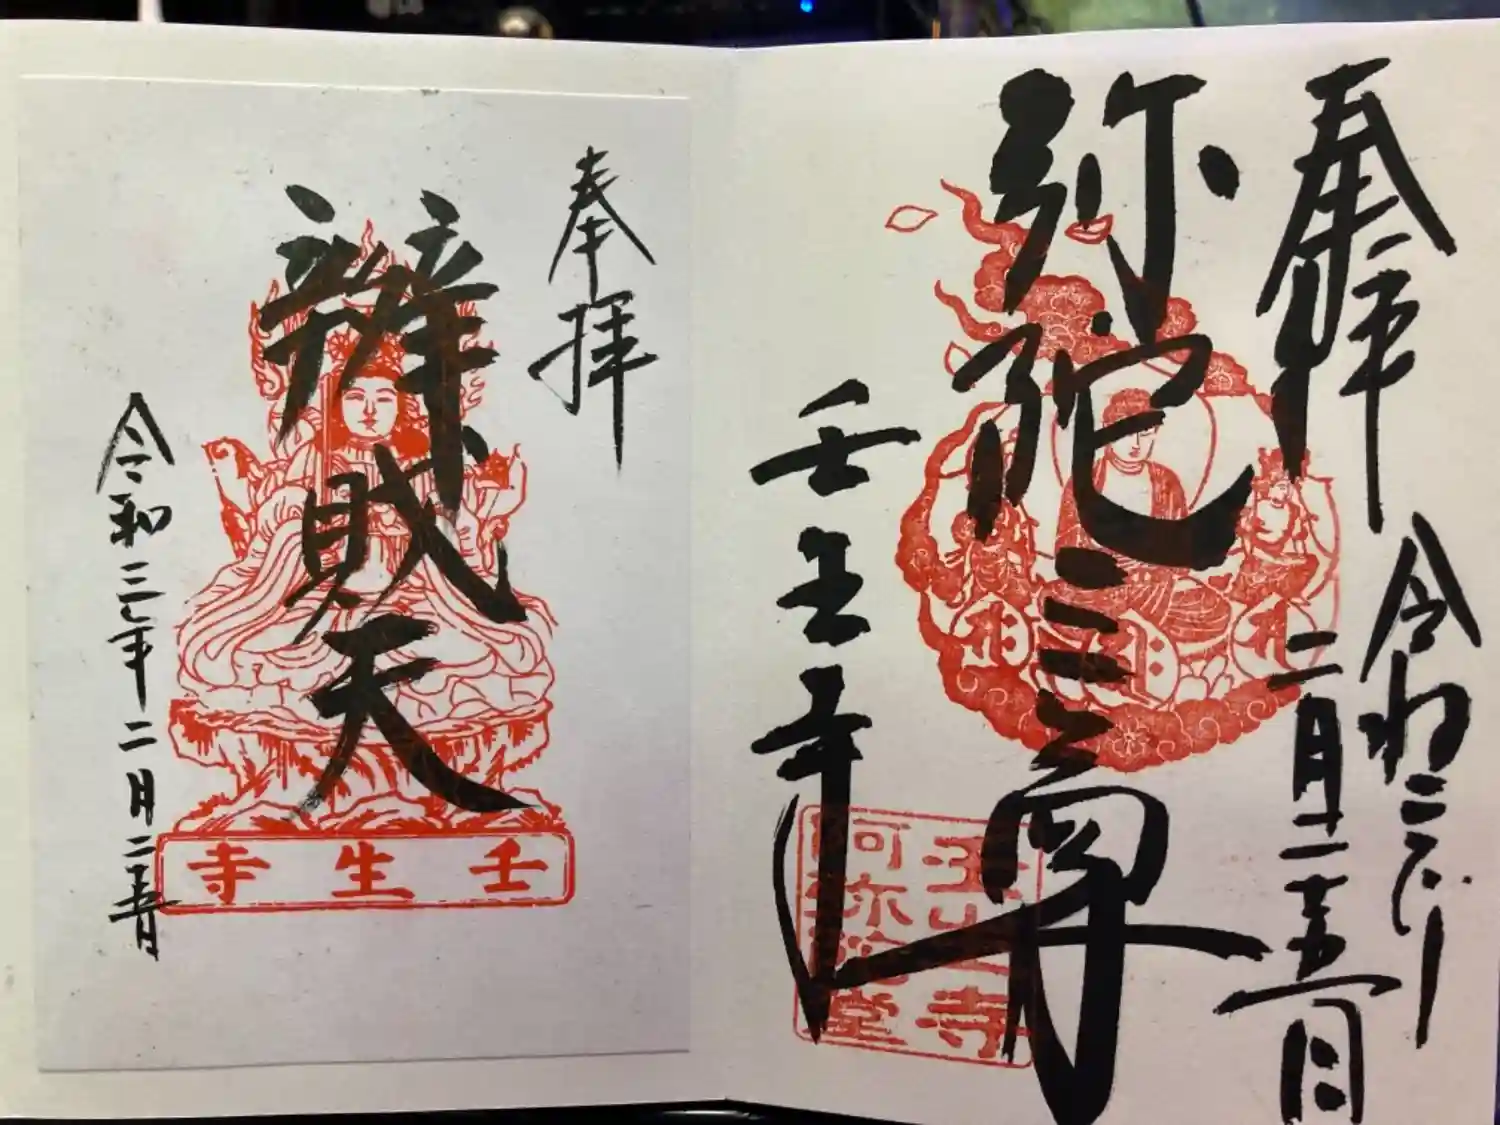 奉拝
令和三年二月二十五日
弥陀三尊
壬生寺
壬生寺
阿弥陀堂
奉拝
辨財天
令和三年二月二十五日
壬生寺